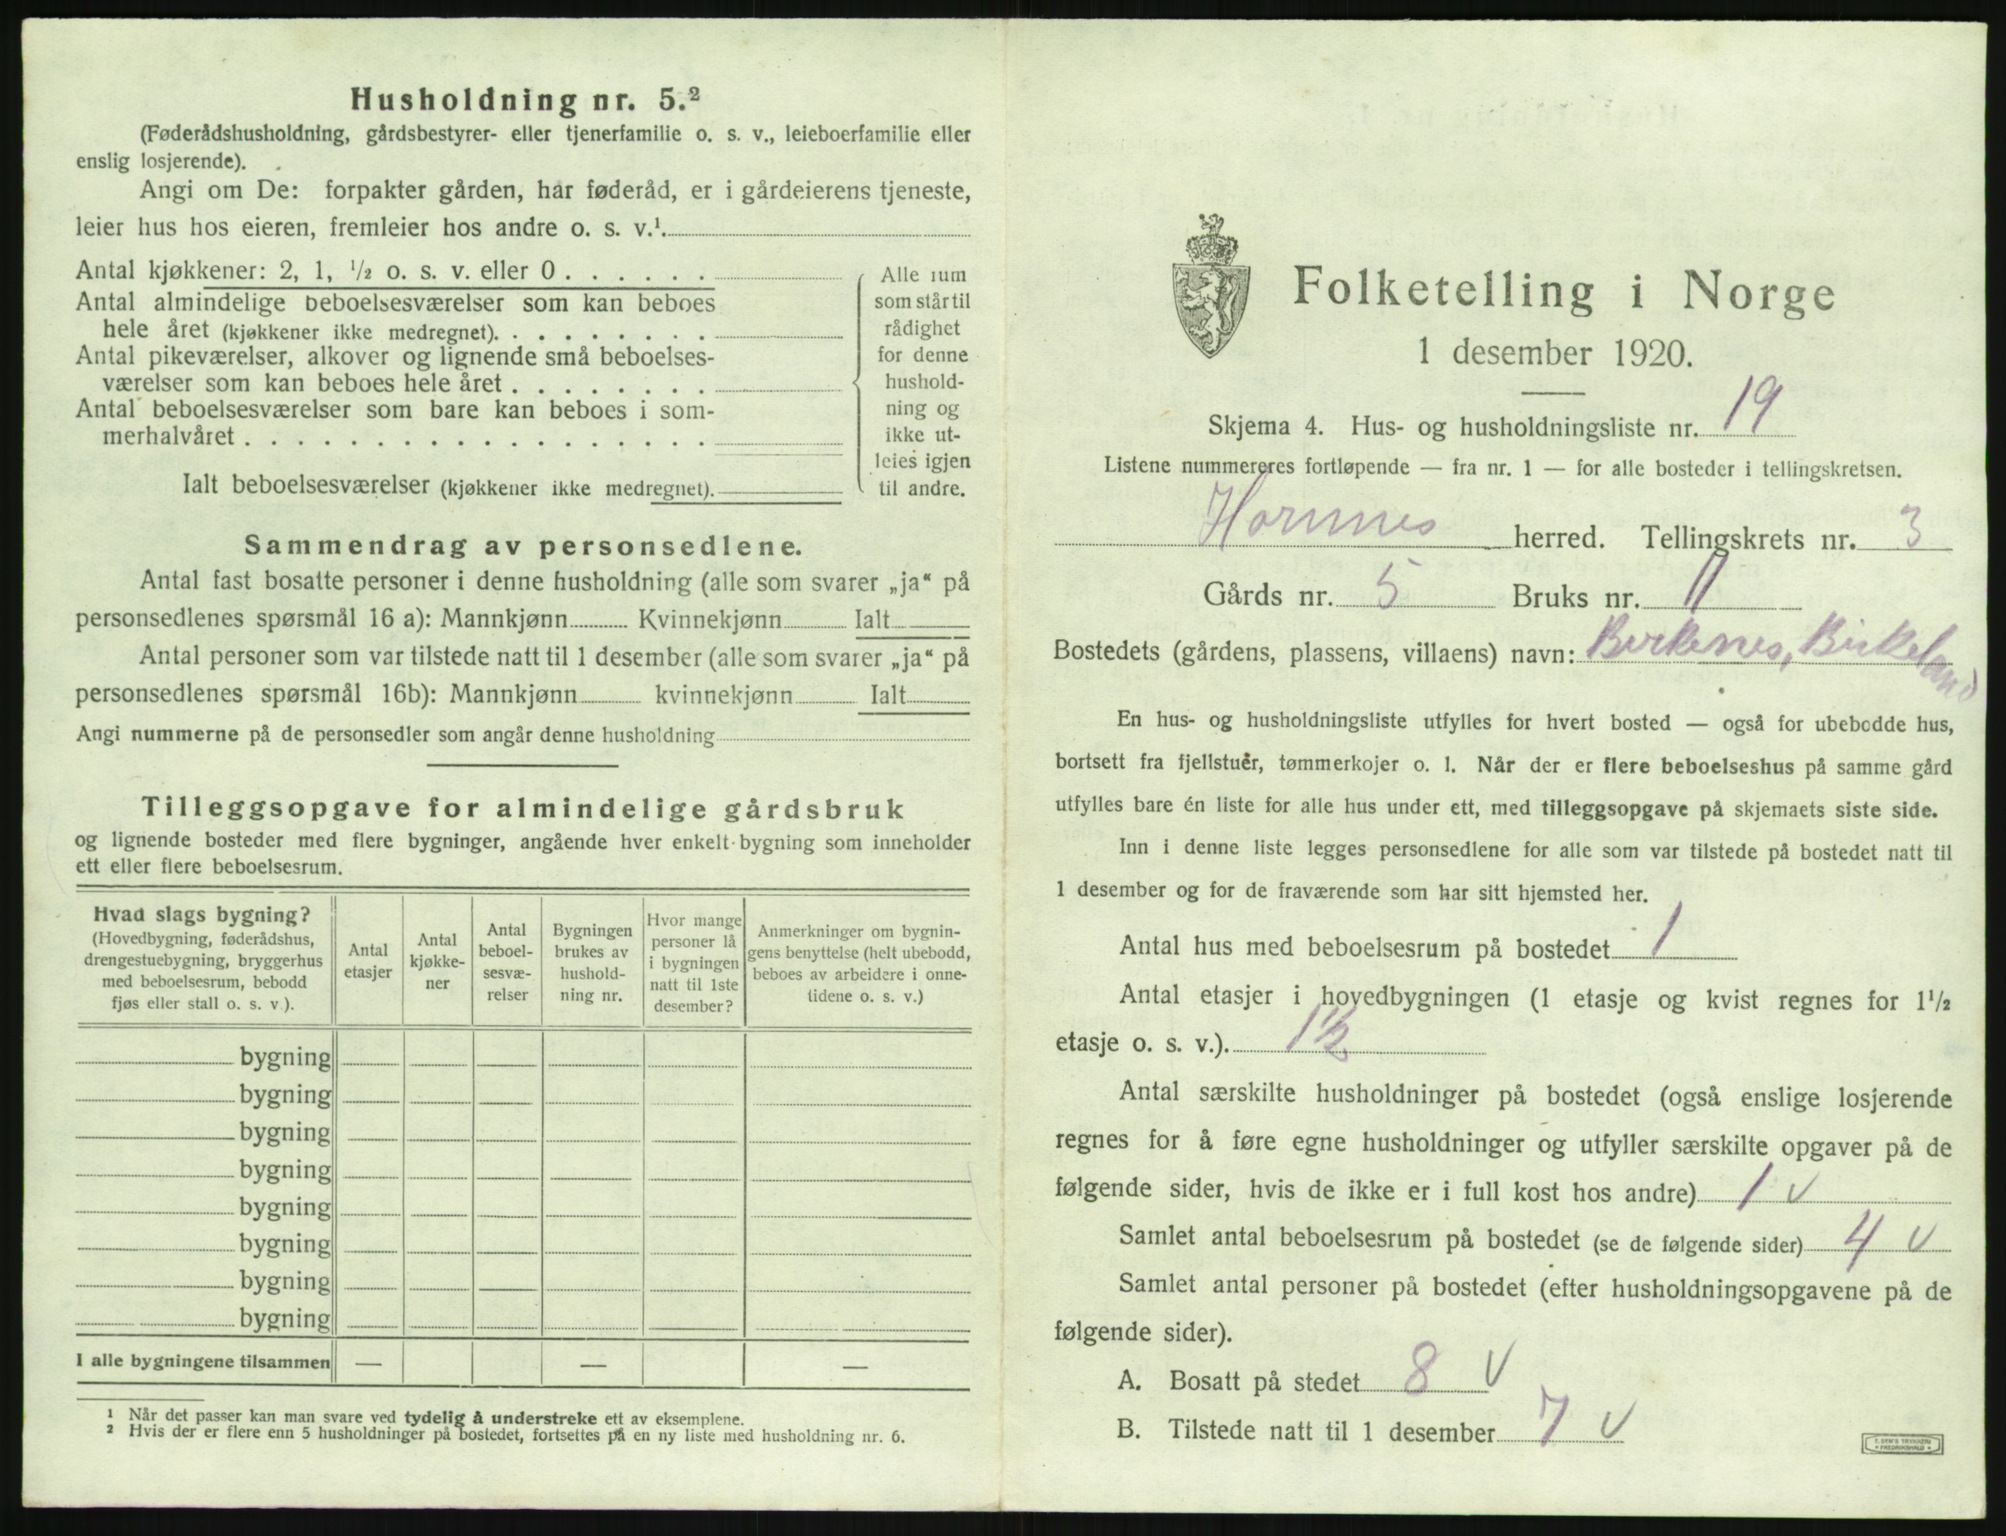 Husholdning nr. 5.²
(Føderådshusholdning, gårdsbestyrer- eller tjenerfamilie o. s. v., leieboerfamilie eller
enslig losjerende).
Angi om De: forpakter gården, har føderåd, er i gårdeierens tjeneste,
leier hus hos eieren, fremleier hos andre o. s. v.¹.
Antal kjøkkener: 2, 1, ½ o. s. v. eller 0 . . . . . .
Antal almindelige beboelsesværelser som kan beboes
hele året (kjøkkener ikke medregnet). . . . . . . . .
Antal pikeværelser, alkover og lignende små beboelses-
værelser som kan beboes hele året . . . . . . . .
Antal beboelsesværelser som bare kan beboes i som-
merhalvåret . . . . . . . . . . . . . . . . . .
Ialt beboelsesværelser (kjøkkener ikke medregnet).
Alle rum
som står til
rådighet
for denne
hushold-
ning og
ikke ut-
leies igjen
til andre.
Sammendrag av personsedlene.
Antal fast bosatte personer i denne husholdning (alle som svarer „ja“ på
personsedlenes spørsmål 16 a): Mannkjønn Kvinnekjønn Ialt
Antal personer som var tilstede natt til 1 desember (alle som svarer „ja“ på
personsedlenes spørsmål 16b): Mannkjønn kvinnekjønn Ialt
Angi nummerne på de personsedler som angår denne husholdning
Tilleggsopgave for almindelige gårdsbruk
og lignende bosteder med flere bygninger, angående hver enkelt bygning som inneholder
ett eller flere beboelsesrum.
Hvad slags bygning?
(Hovedbygning, føderådshus,
drengestuebygning, bryggerhus
med beboelsesrum, bebodd
fjøs eller stall o. s. v.).
Antal
etasjer
Antal
kjøkke-
ner
Antal
beboel-
sesvæ-
relser
Bygningen
brukes av
hushold-
ning nr.
Hvor mange
personer lå
i bygningen
natt til 1ste
desember?
Anmerkninger om bygnin-
gens benyttelse (helt ubebodd,
beboes av arbeidere i onne-
tidene o. s. v.)
bygning
bygning
bygning
bygning
bygning
bygning
bygning
bygning
I alle bygningene tilsammen — — —
¹ Når det passer kan man svare ved tydelig å understreke ett av eksemplene.
² Hvis der er flere enn 5 husholdninger på bostedet, fortsettes på en ny liste med husholdning nr. 6.
Folketelling i Norge
1 desember 1920.
Skjema 4. Hus- og husholdningsliste nr. 19
Listene nummereres fortløpende — fra nr. 1 — for alle bosteder i tellingskretsen.
Hornnes herred. Tellingskrets nr. 3
Gårds nr. 5 Bruks nr. 11
Bostedets (gårdens, plassens, villaens) navn: Birkenes, Birkeland
En hus- og husholdningsliste utfylles for hvert bosted — også for ubebodde hus,
bortsett fra fjellstuer, tømmerkojer o. l. Når der er flere beboelseshus på samme gård
utfylles bare én liste for alle hus under ett, med tilleggsopgave på skjemaets siste side.
Inn i denne liste legges personsedlene for alle som var tilstede på bostedet natt til
1 desember og for de fraværende som har sitt hjemsted her.
Antal hus med beboelsesrum på bostedet 1
Antal etasjer i hovedbygningen (1 etasje og kvist regnes for 1½
etasje o. s. v.). 1½
Antal særskilte husholdninger på bostedet (også enslige losjerende
regnes for å føre egne husholdninger og utfyller særskilte opgaver på de
følgende sider, hvis de ikke er i full kost hos andre) 1 v
Samlet antal beboelsesrum på bostedet (se de følgende sider) 4 v
Samlet antal personer på bostedet (efter husholdningsopgavene på de
følgende sider).
A. Bosatt på stedet 8 v
B. Tilstede natt til 1 desember 7 v